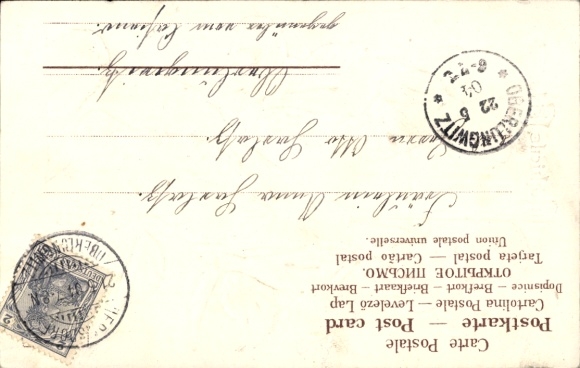 Carte Postale
Postkarte — Post card
Cartolina Postale — Levelező Lap
Dopisnice — Brefkort — Briefkaart — Brevkort
ОТКРЫТОЕ ПИСЬМО.
Tarjeta postal — Cartão postal
Union postale universelle.
Fräulein Anna
Herrn Otto
Oberlungwitz.
gegenüber vom Casino.
* OBERLUNGWITZ *
22 5
04
6-7
2